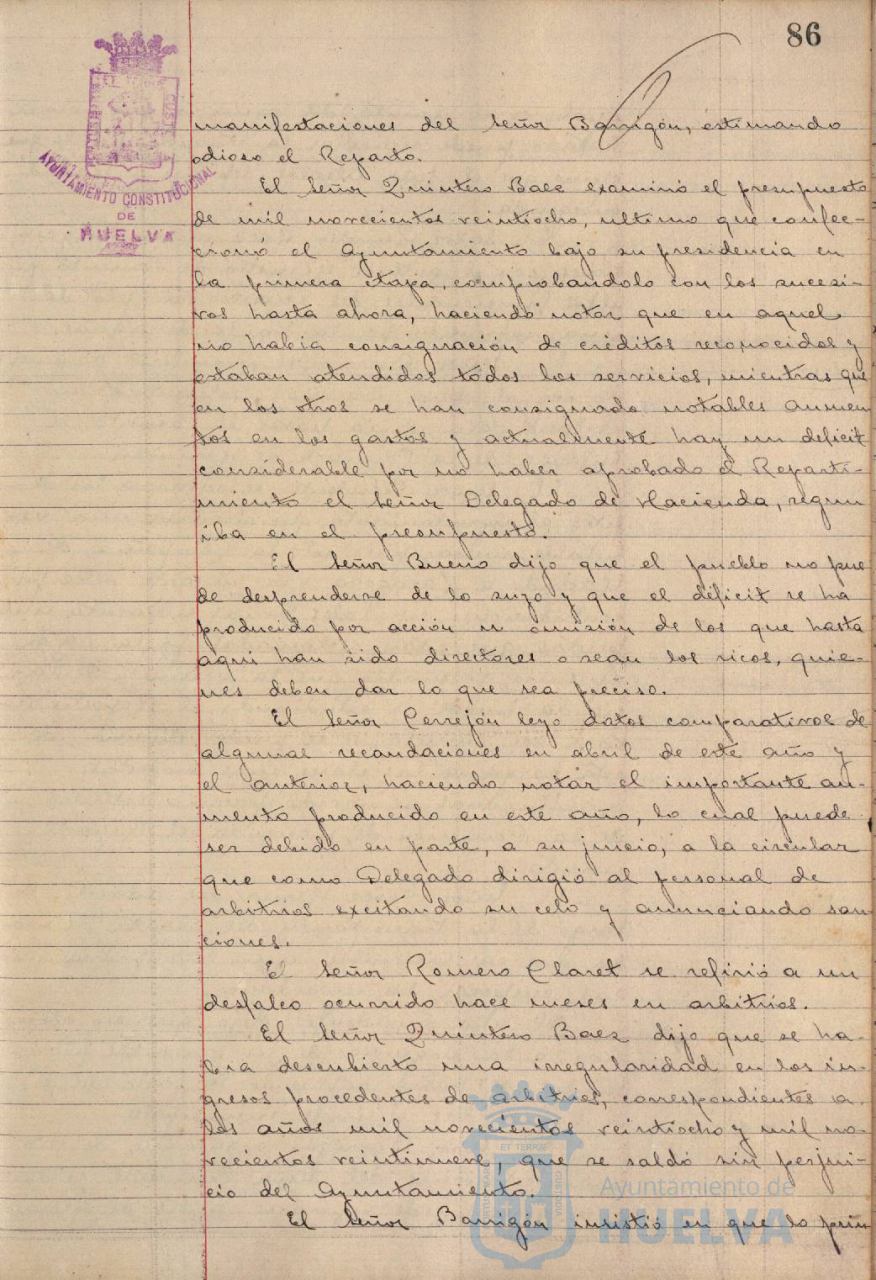 86
AYUNTAMIENTO CONSTITUCIONAL
DE
HUELVA
manifestaciones del Señor Barrigón, estimando
odioso el Reparto.
El Señor Quintero Baez examinó el presupuesto
de mil novecientos veintiocho, ultimo que confec-
cionó el Ayuntamiento bajo su presidencia en
la primera etapa, comprobandolo con los sucesi-
vos hasta ahora, haciendo notar que en aquel
no habia consignación de créditos reconocidos y
estaban atendidos todos los servicios, mientras que
en los otros se han consignado notables aumen
tos en los gastos y actualmente hay un deficit
considerable por no haber aprobado el Reparti-
miento el Señor Delegado de Hacienda, segun
iba en el presupuesto.
El Señor Bueno dijo que el pueblo no pue
de desprenderse de lo suyo y que el déficit se ha
producido por acción u omisión de los que hasta
aqui han sido directores o sean los ricos, quie-
nes deben dar lo que sea preciso.
El Señor Cerrejón leyo datos comparativos de
algunas recaudaciones en abril de este año y
el anterior, haciendo notar el importante au-
mento producido en este año, lo cual puede
ser debido en parte, a su juicio, a la circular
que como Delegado dirigió al personal de
arbitrios excitando su celo y anunciando san
ciones.
El Señor Romero Claret se refirió a un
desfalco ocurrido hace meses en arbitrios.
El Señor Quintero Baez dijo que se ha-
bia descubierto una irregularidad en los in-
gresos procedentes de arbitrios, correspondientes a
los años mil novecientos veintiocho y mil no-
vecientos veintinueve, que se saldó sin perjui-
cio del Ayuntamiento.
El Señor Barrigón insistió en que lo prin
Ayuntamiento de
HUELVA